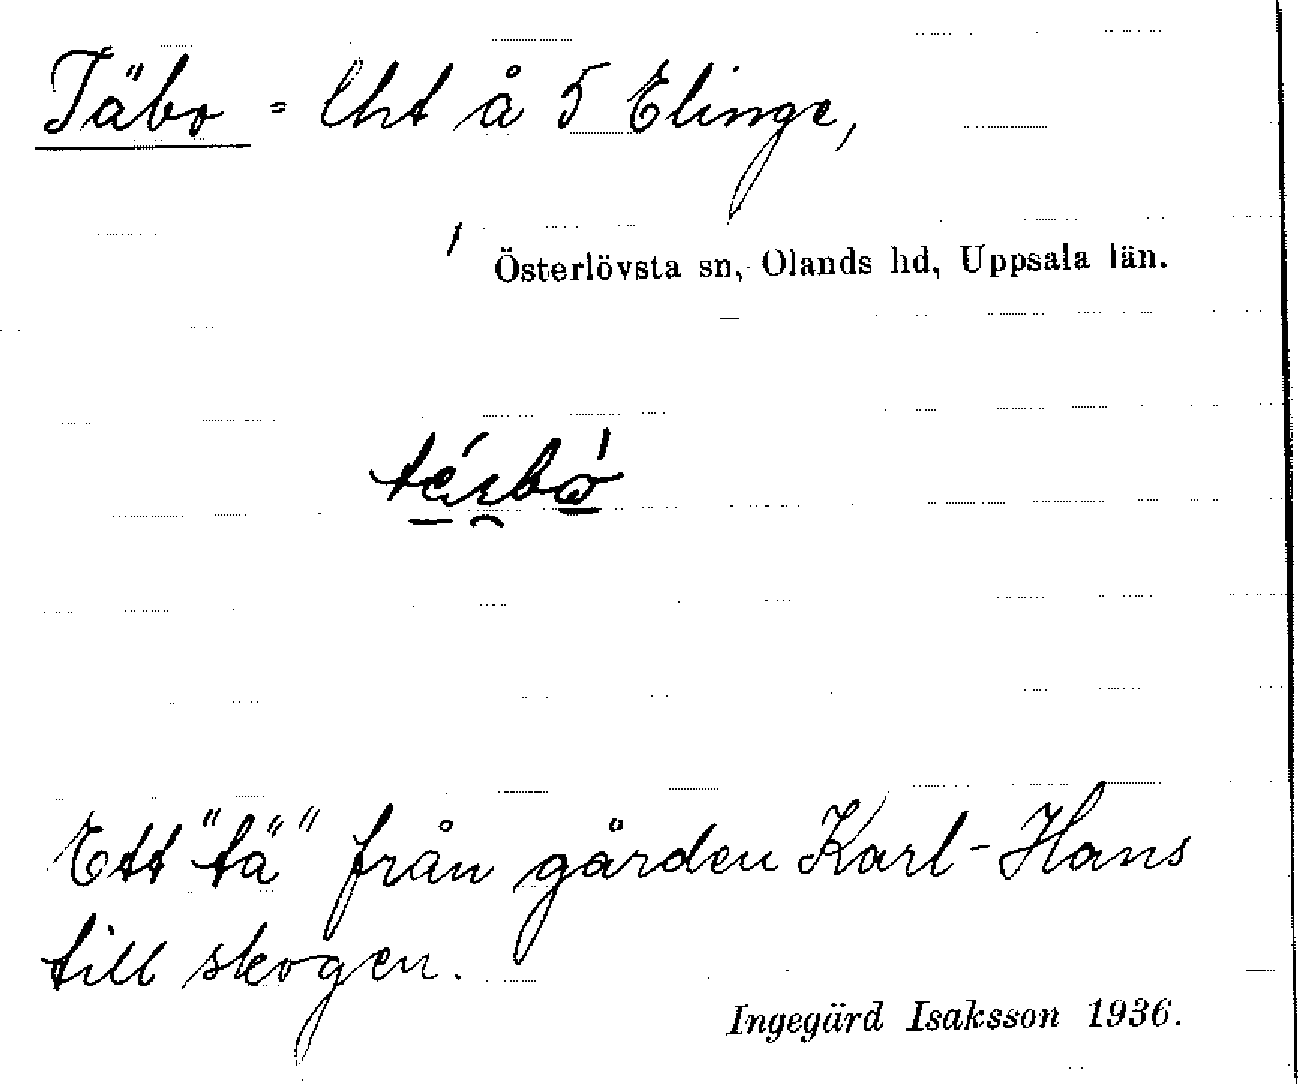 Täbo = lht å 5 Elinge,
Österlövsta sn, Olands hd, Uppsala län.
Ett "tä" från gården Karl-Hans
till skogen.
Ingegärd Isaksson 1936.